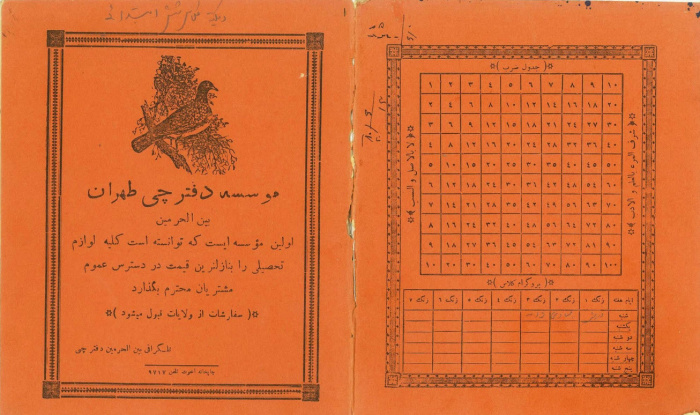 موسسه دفترچی طهران
بین الحرمین
اولین مؤسسه ایست که توانسته است کلیه لوازم
تحصیلی را بنازلترین قیمت در دسترس عموم
مشتریان محترم بگذارد
*( سفارشات از ولایات قبول میشود )*
تلگرافی بین الحرمین دفترچی
*( جدول ضرب )*
۱ ۲ ۳ ۴ ۵ ۶ ۷ ۸ ۹ ۱۰
۲ ۴ ۶ ۸ ۱۰ ۱۲ ۱۴ ۱۶ ۱۸ ۲۰
۳ ۶ ۹ ۱۲ ۱۵ ۱۸ ۲۱ ۲۴ ۲۷ ۳۰
۴ ۸ ۱۲ ۱۶ ۲۰ ۲۴ ۲۸ ۳۲ ۳۶ ۴۰
۵ ۱۰ ۱۵ ۲۰ ۲۵ ۳۰ ۳۵ ۴۰ ۴۵ ۵۰
۶ ۱۲ ۱۸ ۲۴ ۳۰ ۳۶ ۴۲ ۴۸ ۵۴ ۶۰
۷ ۱۴ ۲۱ ۲۸ ۳۵ ۴۲ ۴۹ ۵۶ ۶۳ ۷۰
۸ ۱۶ ۲۴ ۳۲ ۴۰ ۴۸ ۵۶ ۶۴ ۷۲ ۸۰
۹ ۱۸ ۲۷ ۳۶ ۴۵ ۵۴ ۶۳ ۷۲ ۸۱ ۹۰
۱۰ ۲۰ ۳۰ ۴۰ ۵۰ ۶۰ ۷۰ ۸۰ ۹۰ ۱۰۰
شرف المرء بالعلم و الادب
لا بالاصل و النسب
*( پروگرام کلاس )*
ایام هفته زنک ۱ زنک ۲ زنک ۳ زنک ۴ زنک ۵ زنک ۶ زنک ۷
شنبه
یکشنبه
دو شنبه
سه شنبه
چهار شنبه
پنج شنبه